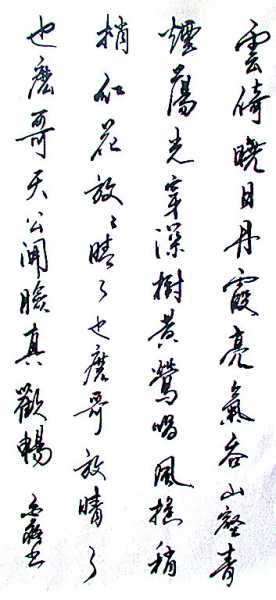 雲倚曉日丹霞亮氣吞山壑青
煙蕩光穿深樹黃鶯唱風搖稍
梢紅花放〻晴了也麽哥放晴了
也麽哥天公開臉真歡暢